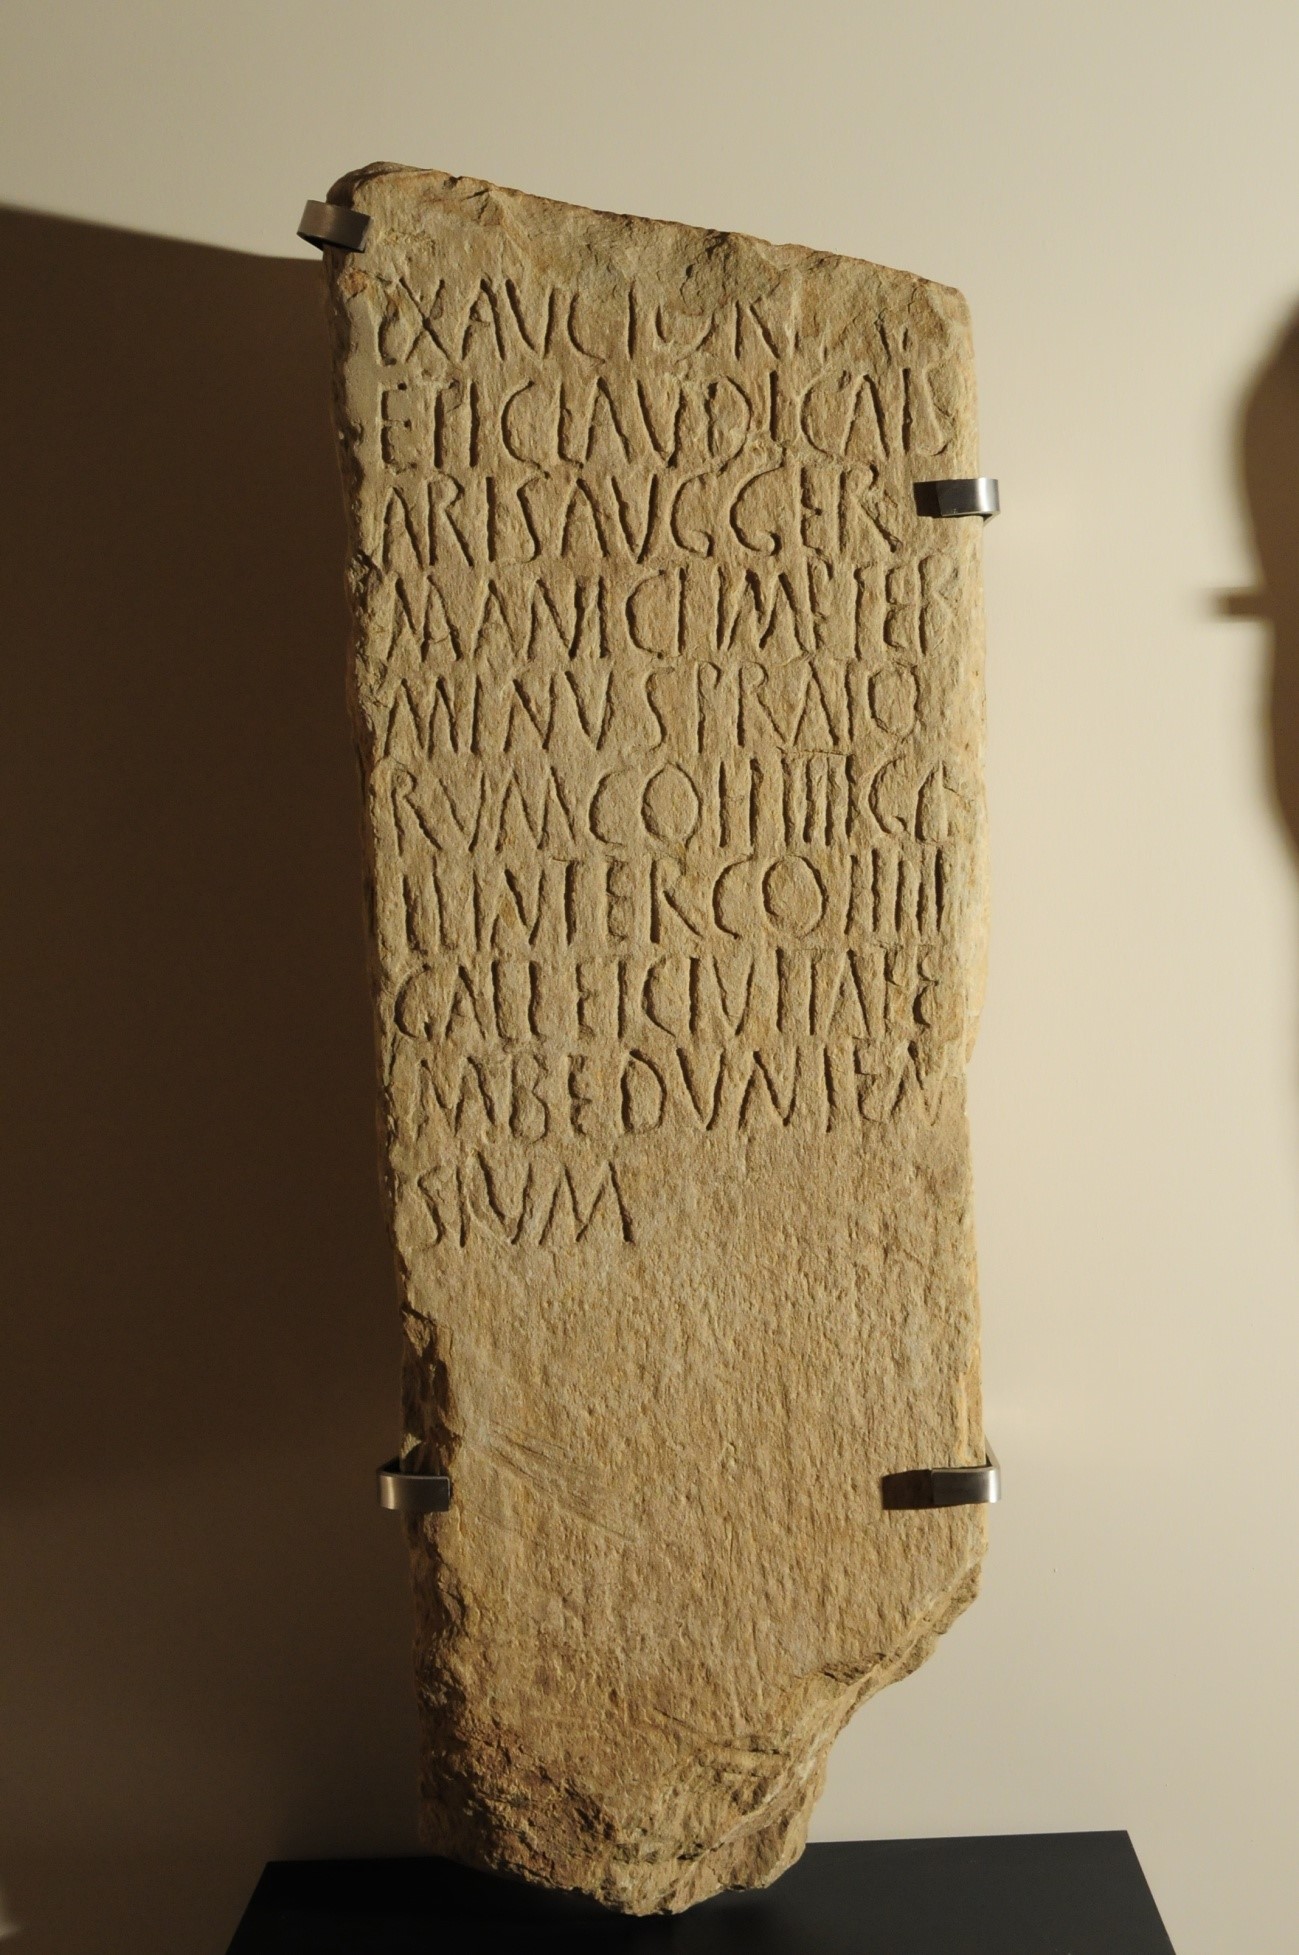 EXAUCTORI
EPICLAUDICAIS
ARISAUGGER
MANICIIMPTER
MINUSPRATO
RUMCOHIIIIGA
LLINTERCOHIIII
GALLETCIVITATE
MBEDUNIEN
SIUM